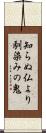 知らぬ仏より
馴染みの鬼